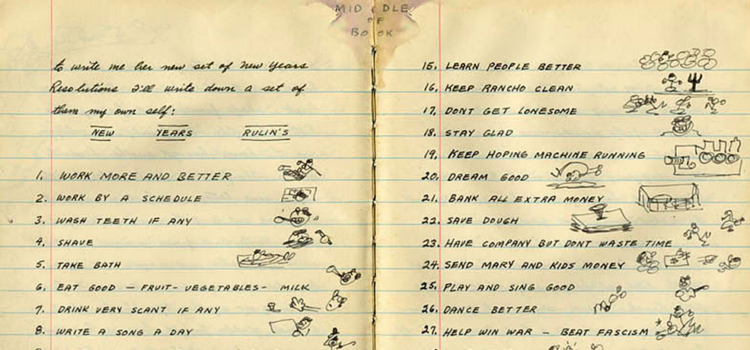 MIDDLE
OF
BOOK
to write me her new set of New Years
Resolutions I'll write down a set of
them my own self:
NEW YEARS RULIN'S
1. WORK MORE AND BETTER
2. WORK BY A SCHEDULE
3. WASH TEETH IF ANY
4. SHAVE
5. TAKE BATH
6. EAT GOOD — FRUIT - VEGETABLES - MILK
7. DRINK VERY SCANT IF ANY
8. WRITE A SONG A DAY
15. LEARN PEOPLE BETTER
16. KEEP RANCHO CLEAN
17. DONT GET LONESOME
18. STAY GLAD
19. KEEP HOPING MACHINE RUNNING
20. DREAM GOOD
21. BANK ALL EXTRA MONEY
22. SAVE DOUGH
23. HAVE COMPANY BUT DONT WASTE TIME
24. SEND MARY AND KIDS MONEY
25. PLAY AND SING GOOD
26. DANCE BETTER
27. HELP WIN WAR — BEAT FASCISM